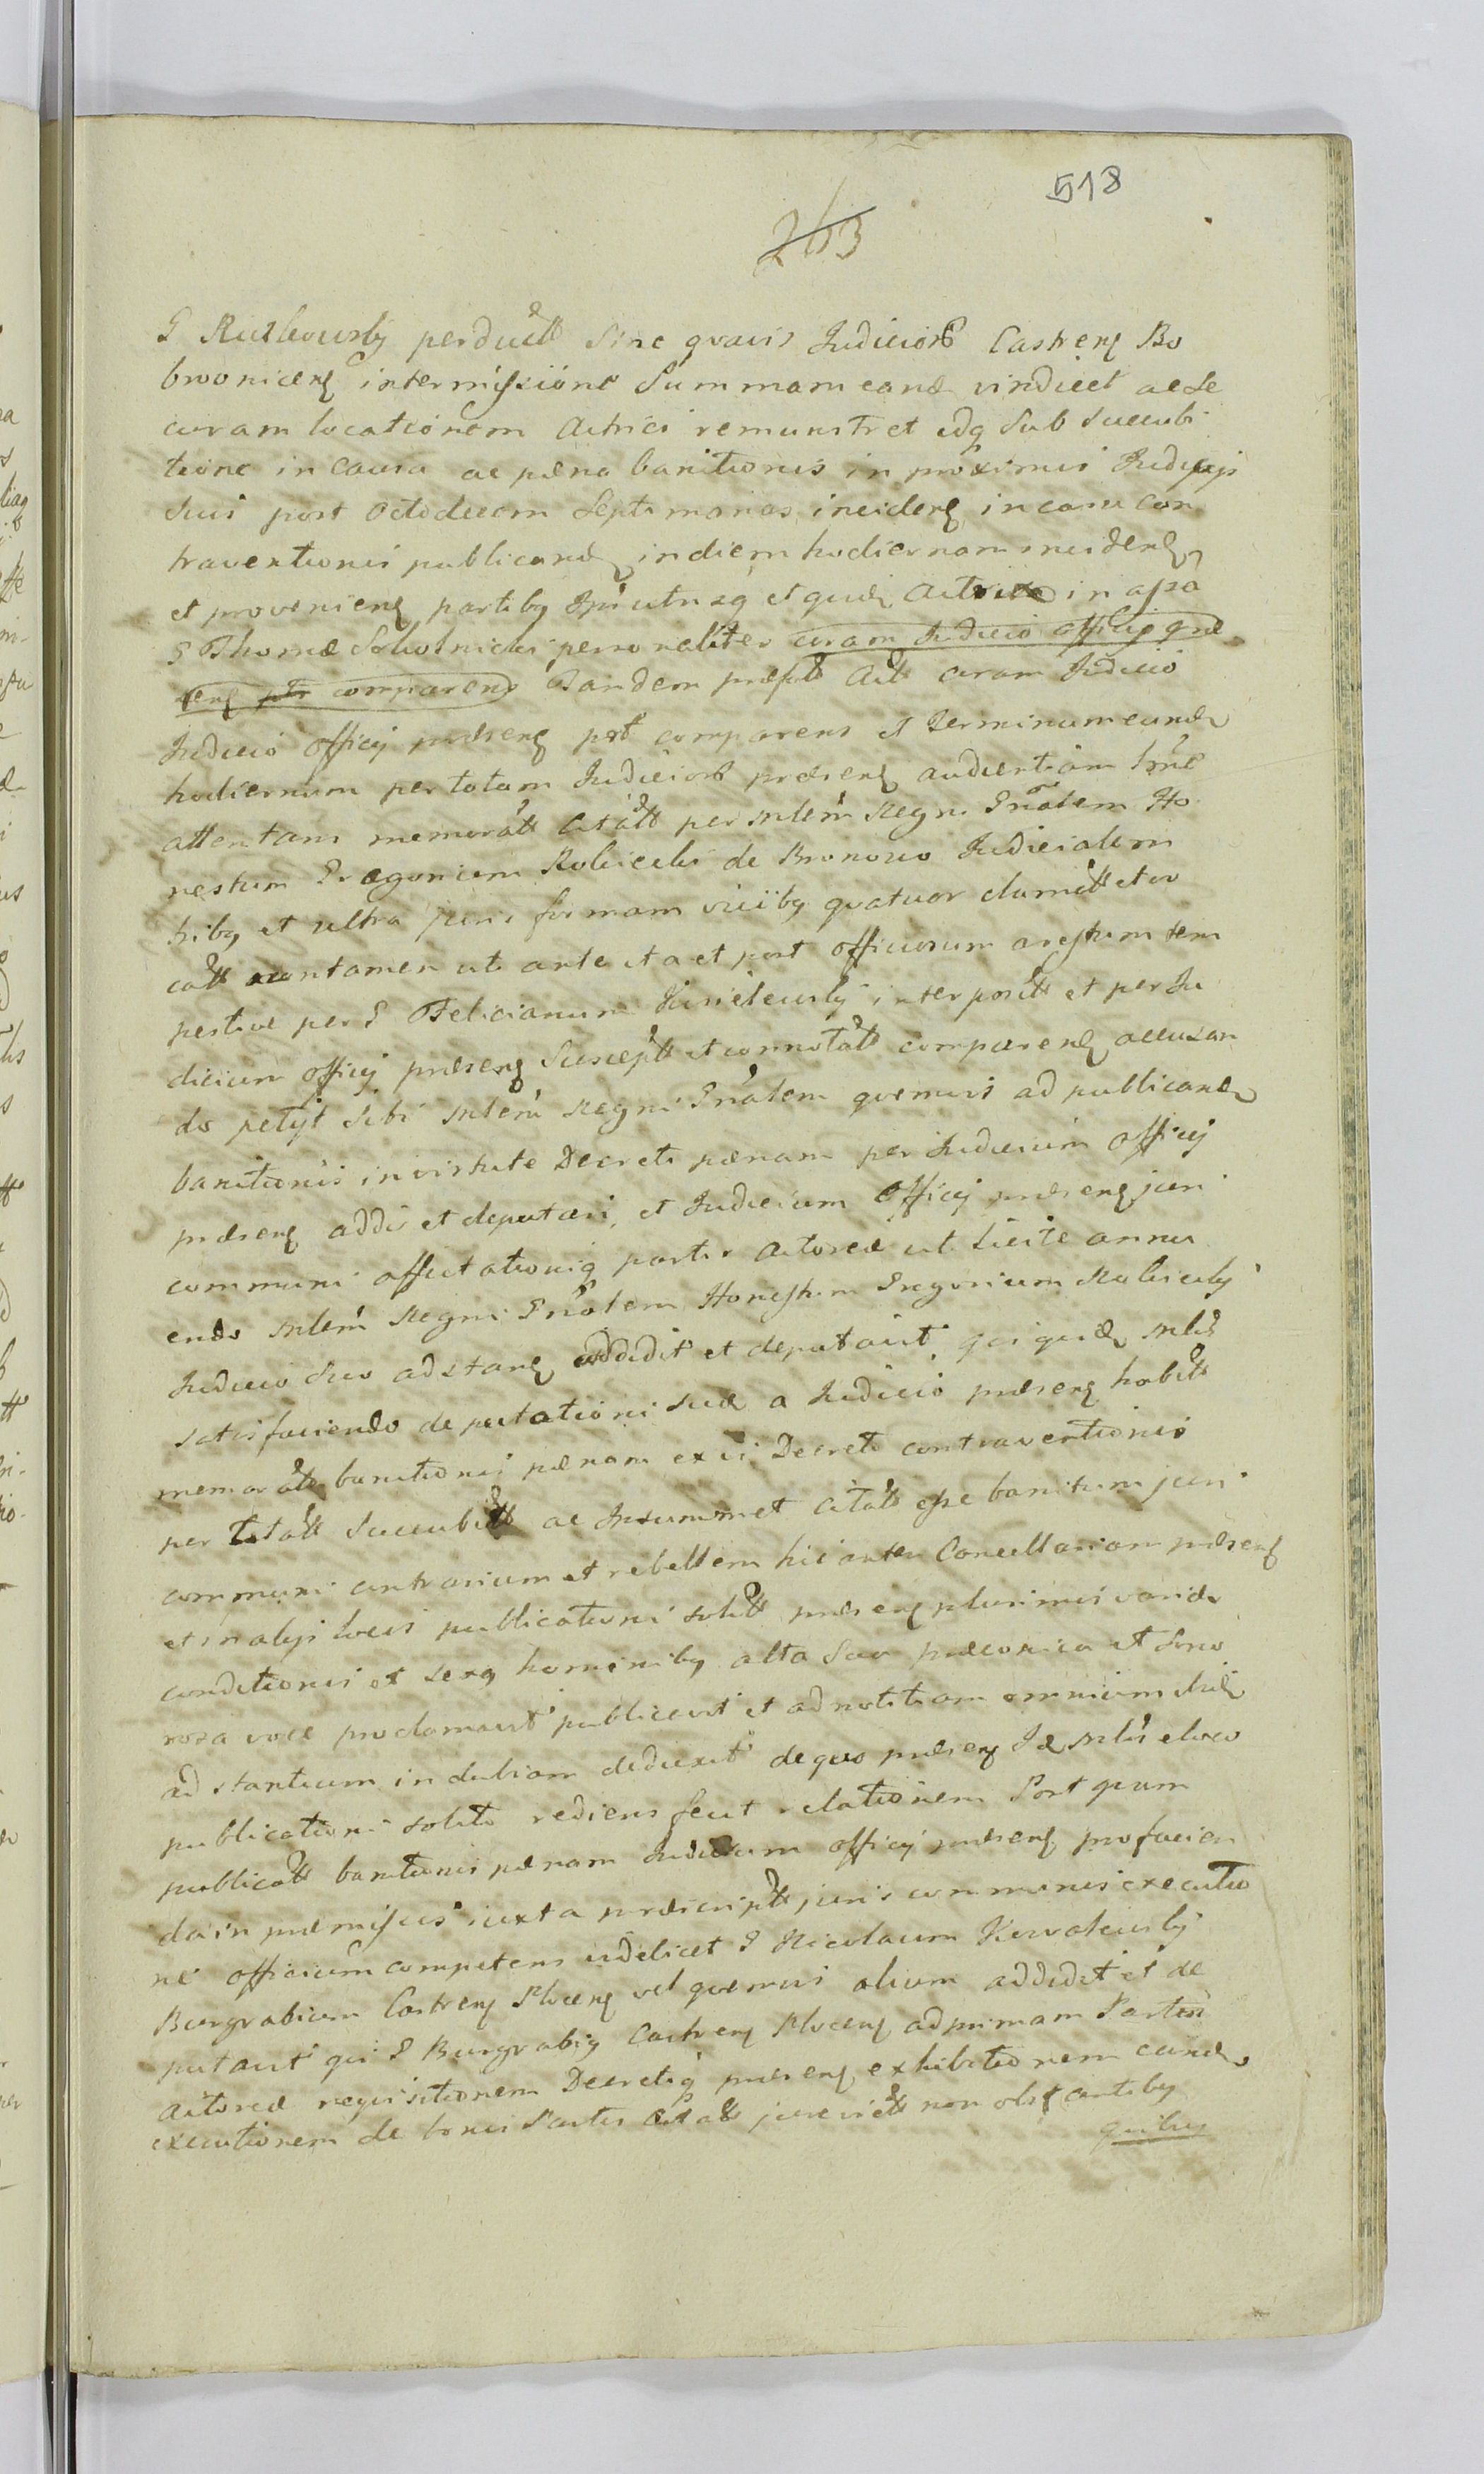 518
263
G Rutkowsky perductt sine quavis Judiciorb Castren Bo
brovnicen intermissione Summam eand vindicet ac se
curam locationem Actrici remunstret idq sub succubi
tione in causa ac pæna banitionis in proximis Judicijs
suis post Octodecem Septimanas inciden in casu con
traventionis publicand in diem hodiernam inciden
et provenien partiby Ipsi utrisq et quid Actrix in assa
G Thomæ Sokolnicki personaliter coram Judicio officij præ
sen ptr comparens Tandem præfatt Actt coram Judicio
Judicio officij præsen ptt comparens et Terminum eund
hodiernum per totam Judiciorb præsen audientiam
attentans memoratt Citatt per mlem Regni Gnalem Ho
nestum Gregorium Kobicki de Bronowo Judicialem
triby et ultra juris formam viciby quatuor clamatt et vo
catt non tamen uti ante ita et post officiosum arestum tem
pestive per G Felicianum Kisielewsky interpositt et per Ju
dicium officij præsen Susceptt et connotatt comparen accusan
do petyt sibi mlem Regni Gnalem quemvis ad publicand
banitionis in virtute Decreti pænam per Judicium officij
præsen addi et deputari, et Judicium Officij præsen juri
communi affectationiq partis Actoreæ uti licitæ annu
endo mlem Regni Gnalem Honestum Gregorium Kobicky
Judicio suo adstan addidit et deputavit qui quid mlis
satisfaciendo deputationi suæ a Judicio præsen habitt
memoratt banitionis pænam ex vi Decreti contraventionis
per Citatt succubitt ac Insummet Citatt esse banitum juri
communi contrarium et rebellem hic ante Cancellariam præsen
et in alijs locis publicationi solitt præsen plurimis varid
conditionis et sexq hominiby alta sua præconica et sono
rosa voce proclamavit publicavit et ad notitiam omnium
adstantium indubiam deduxit de quo præsen Id mlis e loco
publicationi solito rediens fecit relationem Post quam
publicatt banitionis pænam Judicium officij præsen pro facien
da in præmissis iuxta præscriptt juris communis executio
ne officium competens videlicet G Nicolaum Kowalewsky
Burgrabium Castren Plocen vel quemvis alium addidit et de
putavit qui G Burgrabiq Castren Plocen ad primam Partis
Actoreæ requisitionem Decretiq præsen exhibitionem eand
executionem de bonis Partis Citatt jure victt non obstantiby
quiby